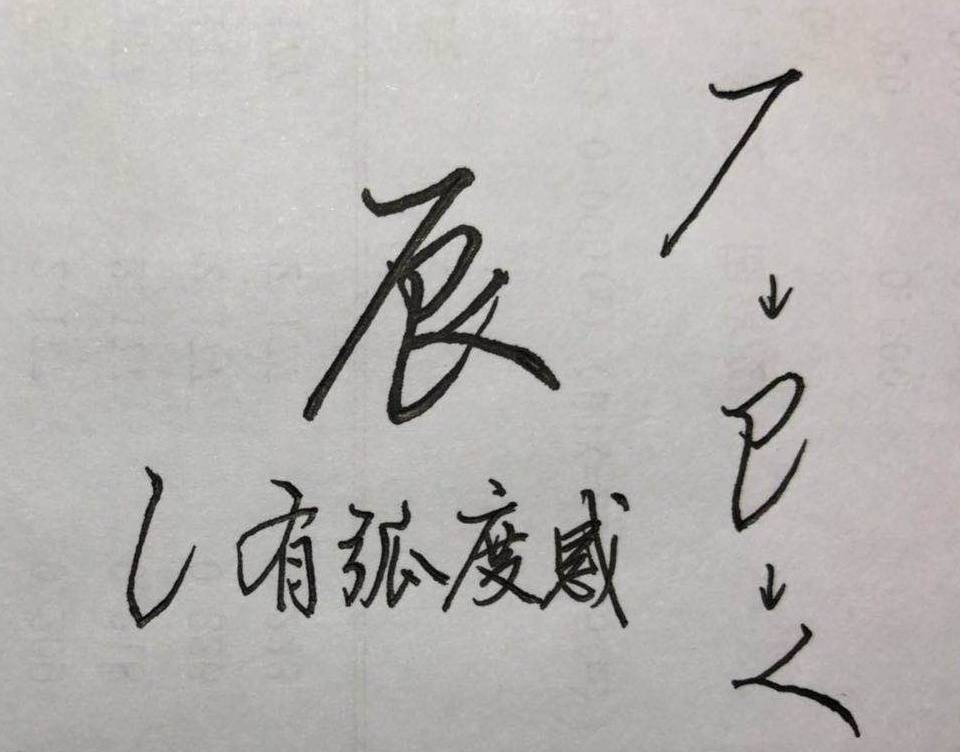 辰
乚有弧度感